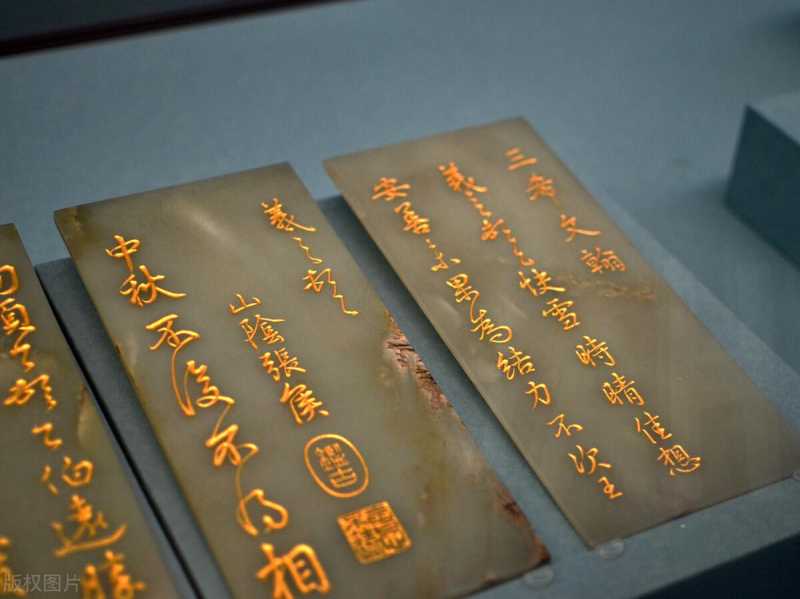 三希文翰
羲之頓首快雪時晴佳想
安善未果為結力不次王
羲之頓首
山陰張侯
中秋不復不得相
頓首頓首伯遠勝
版权图片